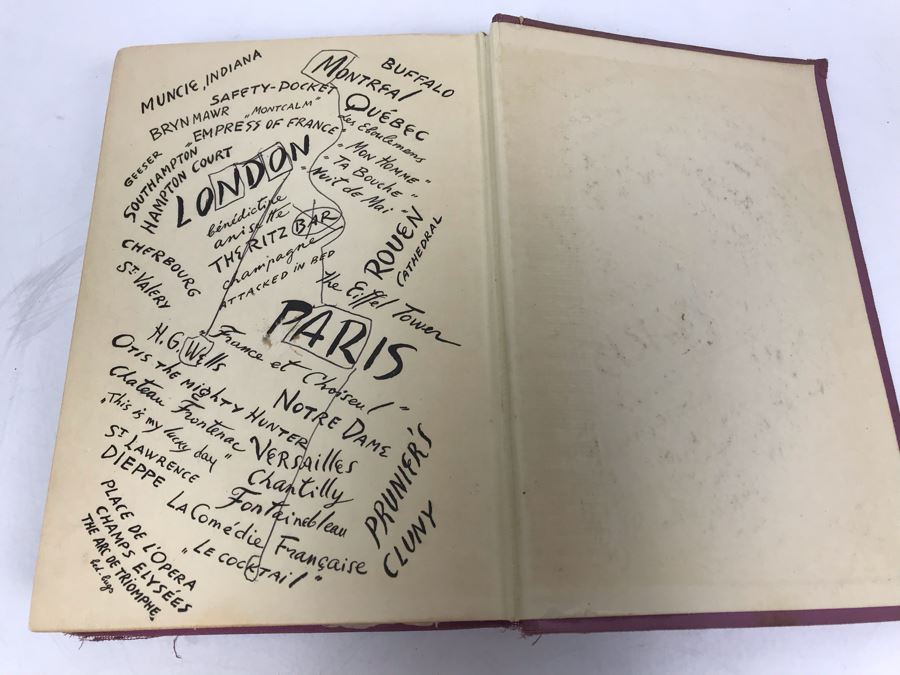 MUNCIE, INDIANA
MONTREAL
BUFFALO
SAFETY-POCKET
BRYN MAWR
"MONTCALM"
QUÉBEC
Les Eboulemens
"EMPRESS OF FRANCE"
GEESER
SOUTHAMPTON
HAMPTON COURT
"MON HOMME"
"TA BOUCHE"
"Nuit de Mai"
LONDON
bénédictine
anisette
THE RITZ BAR
champagne
ATTACKED IN BED
ROUEN
CATHEDRAL
CHERBOURG
ST VALERY
the Eiffel Tower
PARIS
H.G. Wells
"France et Choiseul"
OTIS THE MIGHTY HUNTER
NOTRE DAME
Chateau Frontenac
"This is my lucky day"
VERSAILLES
ST LAWRENCE
Chantilly
DIEPPE
Fontainebleau
PRUNIER'S
CLUNY
LA Comédie Française
PLACE DE L'OPERA
"LE COCKTAIL"
CHAMPS ELYSÉES
THE ARC DE TRIOMPHE
bed-bugs